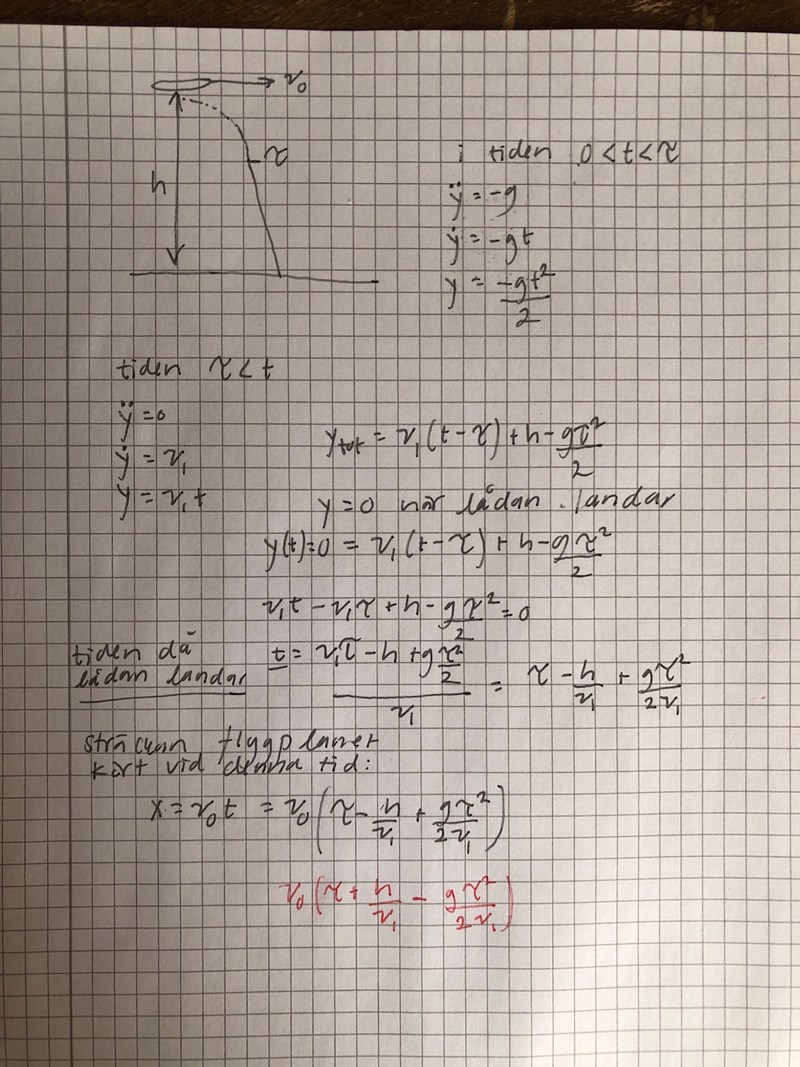 v₀
h
τ
i tiden 0<t<τ
ÿ = -g
ẏ = -gt
y = -gt²/2
tiden t>τ
ÿ = 0
ẏ = v₁
y = v₁t
y_tot = v₁(t-τ)+h-gτ²/2
y=0 när lådan landar
y(t)=0 = v₁(t-τ)+h-gτ²/2
v₁t - v₁τ + h - gτ²/2 = 0
tiden då lådan landar t = (v₁τ - h + gτ²/2)/v₁ = τ - h/v₁ + gτ²/2v₁
sträckan flygplanet
kört vid denna tid:
x = v₀t = v₀(τ - h/v₁ + gτ²/2v₁)
v₀(τ + h/v₁ - gτ²/2v₁)